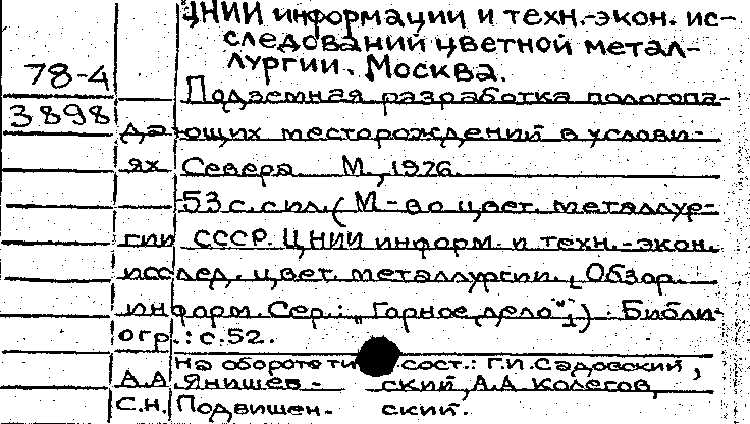 ЦНИИ информации и техн.-экон. ис-
следований цветной метал-
лургии. Москва.
78-4
3898
Подземная разработка пологопа-
дающих месторождений в услови-
ях Севера М., 1976.
53 с. с ил. (М-во цвет. металлур-
гии СССР. ЦНИИ информ. и техн.-экон.
исслед. цвет. металлургии. [Обзор.
информ. Сер.: „Горное дело"]). Библи-
огр.: с. 52.
На обороте ти сост.: Г.И. Садовский,
А.А Янишев- ский, А.А Колегов,
С.Н. Подвишен- ский.